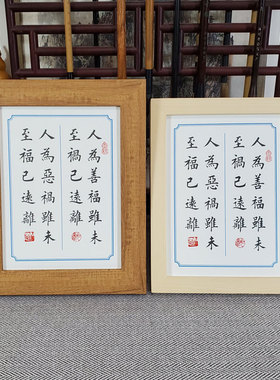 人為善福雖未
至禍已遠離
人為惡禍雖未
至福已遠離
人為善福雖未
至禍已遠離
人為惡禍雖未
至福已遠離